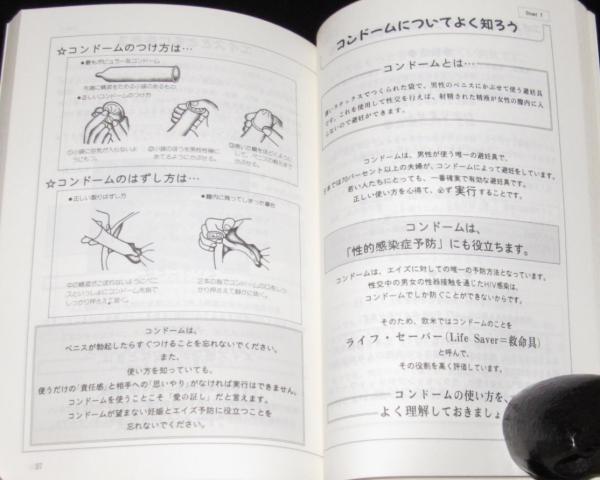 ☆コンドームのつけ方は…
●最もポピュラーなコンドーム
先端に精液をためる小袋のあるもの
●正しいコンドームのつけ方
①小袋に空気が入らないよ
うにもつ。
②小袋のほうを男性性器に
あてるようにかぶせる。
☆コンドームのはずし方は…
●正しい取りはずし方
●膣内に残ってしまった場合
中の精液がこぼれないようにペニ
スといっしょにコンドームを指で
しっかり押さえて抜く。
2本の指でコンドームの口をしっ
かり押さえて静かに抜く。
コンドームは、
ペニスが勃起したらすぐつけることを忘れないでください。
また、
使い方を知っていても、
使うだけの「責任感」と相手への「思いやり」がなければ実行はできません。
コンドームを使うことこそ「愛の証し」だと言えます。
コンドームが望まない妊娠とエイズ予防に役立つことを
忘れないでください。
コンドームについてよく知ろう
コンドームとは…
薄いラテックスでつくられた袋で、男性のペニスにかぶせて使う避妊具
です。これを使用して性交を行えば、射精された精液が女性の膣内に入
らないので避妊ができます。
コンドームは、男性が使う唯一の避妊具で、
では70パーセント以上の夫婦が、コンドームによって避妊をしています。
若い人たちにとっても、一番確実で有効な避妊具です。
正しい使い方を心得て、必ず実行することです。
コンドームは、
「性的感染症予防」にも役立ちます。
コンドームは、エイズに対しての唯一の予防方法となっています。
性交中の男女の性器接触を通じたHIV感染は、
コンドームでしか防ぐことができないからです。
そのため、欧米ではコンドームのことを
ライフ・セーバー(Life Saver=救命具)
と呼んで、
その役割を高く評価しています。
コンドームの使い方を、
よく理解しておきましょ